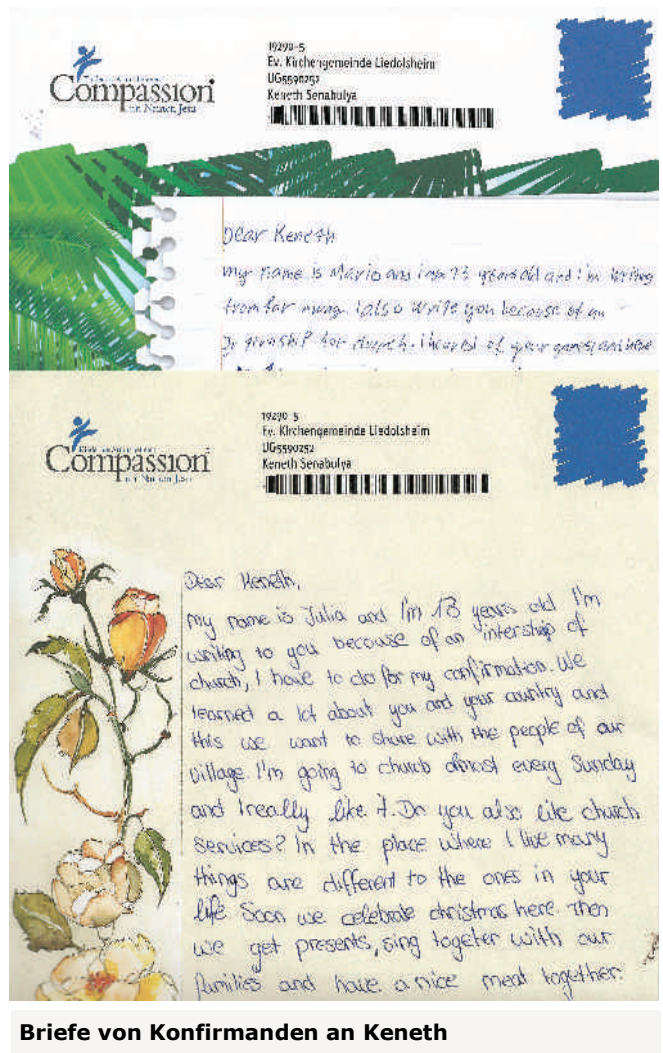 Compassion
im Namen Jesu
19290-5
Ev. Kirchengemeinde Liedolsheim
UG5590252
Keneth Senabulya
Dear Keneth
my name is Mario and i am 13 years old and i'm writing
from far away. I also write you because of an
for church. I heard of your games and
Compassion
im Namen Jesu
19290-5
Ev. Kirchengemeinde Liedolsheim
UG5590252
Keneth Senabulya
Dear Keneth,
my name is Julia and I'm 13 years old I'm
writing to you because of an intership of
church, I have to do for my confirmation. We
learned a lot about you and your country and
this we want to share with the people of our
village. I'm going to church almost every Sunday
and I really like it. Do you also like church
services? In the place where I live many
things are different to the ones in your
life Soon we celebrate christmas here. Then
we get presents, sing togeter with our
families and have a nice meal together.
Briefe von Konfirmanden an Keneth